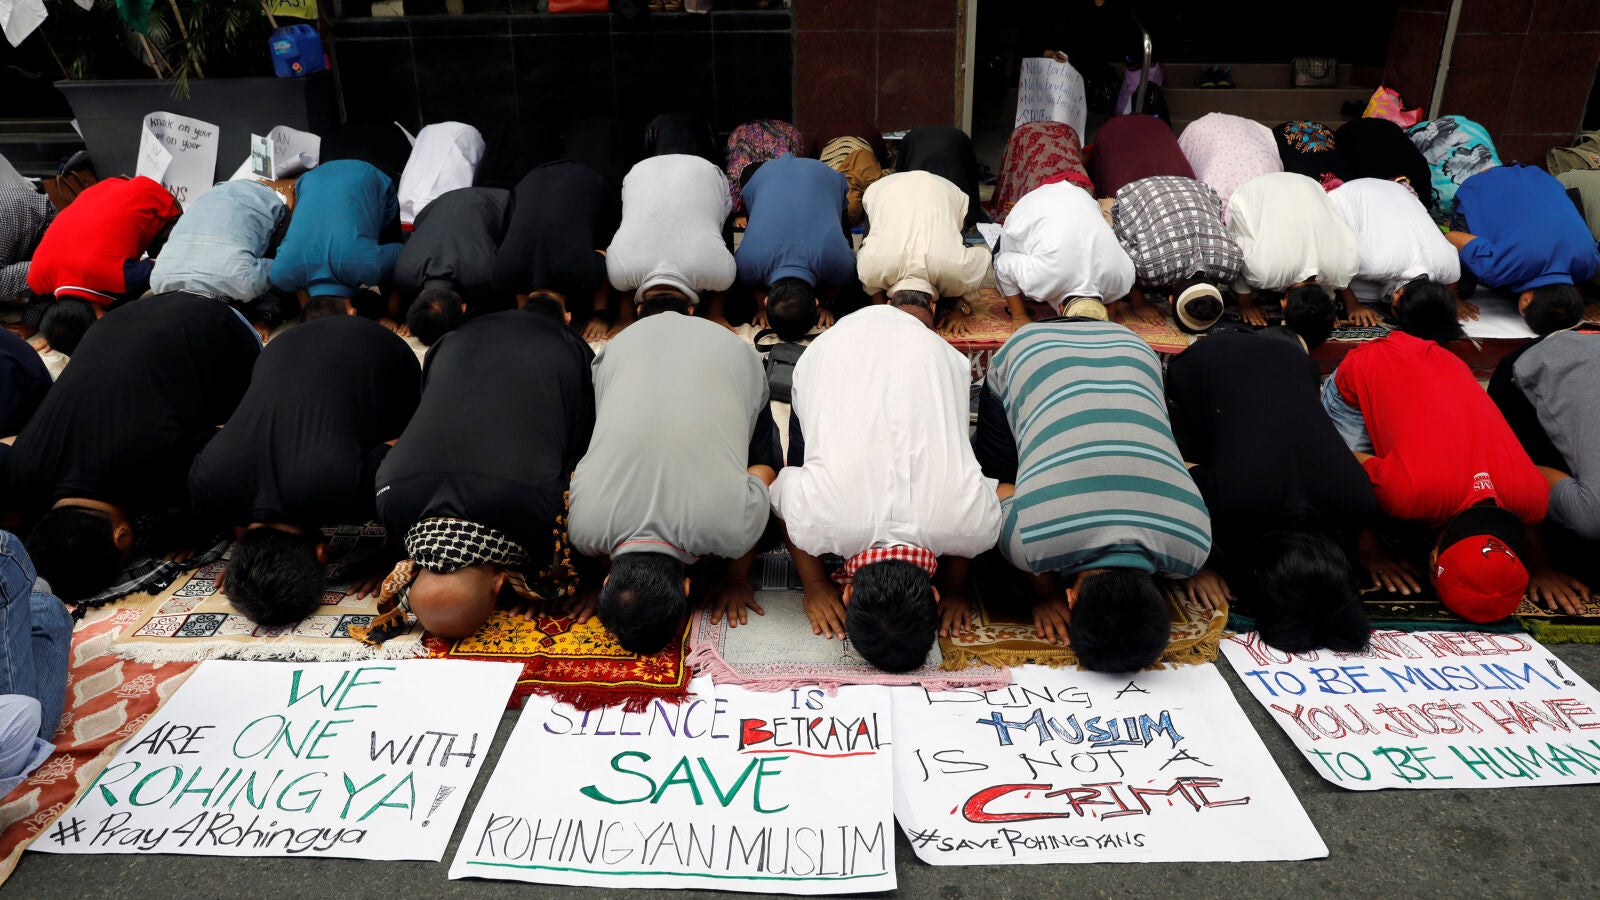 Knok on your
on your
AN
No to torture!
No to brutality!
No to violence!
SAVE
WE
ARE ONE WITH
ROHINGYA!
#Pray4Rohingya
SILENCE IS
BETRAYAL
SAVE
ROHINGYAN MUSLIM
BEING A
MUSLIM
IS NOT A
CRIME
#SAVEROHINGYANS
YOU DON'T NEED
TO BE MUSLIM!
YOU JUST HAVE
TO BE HUMAN